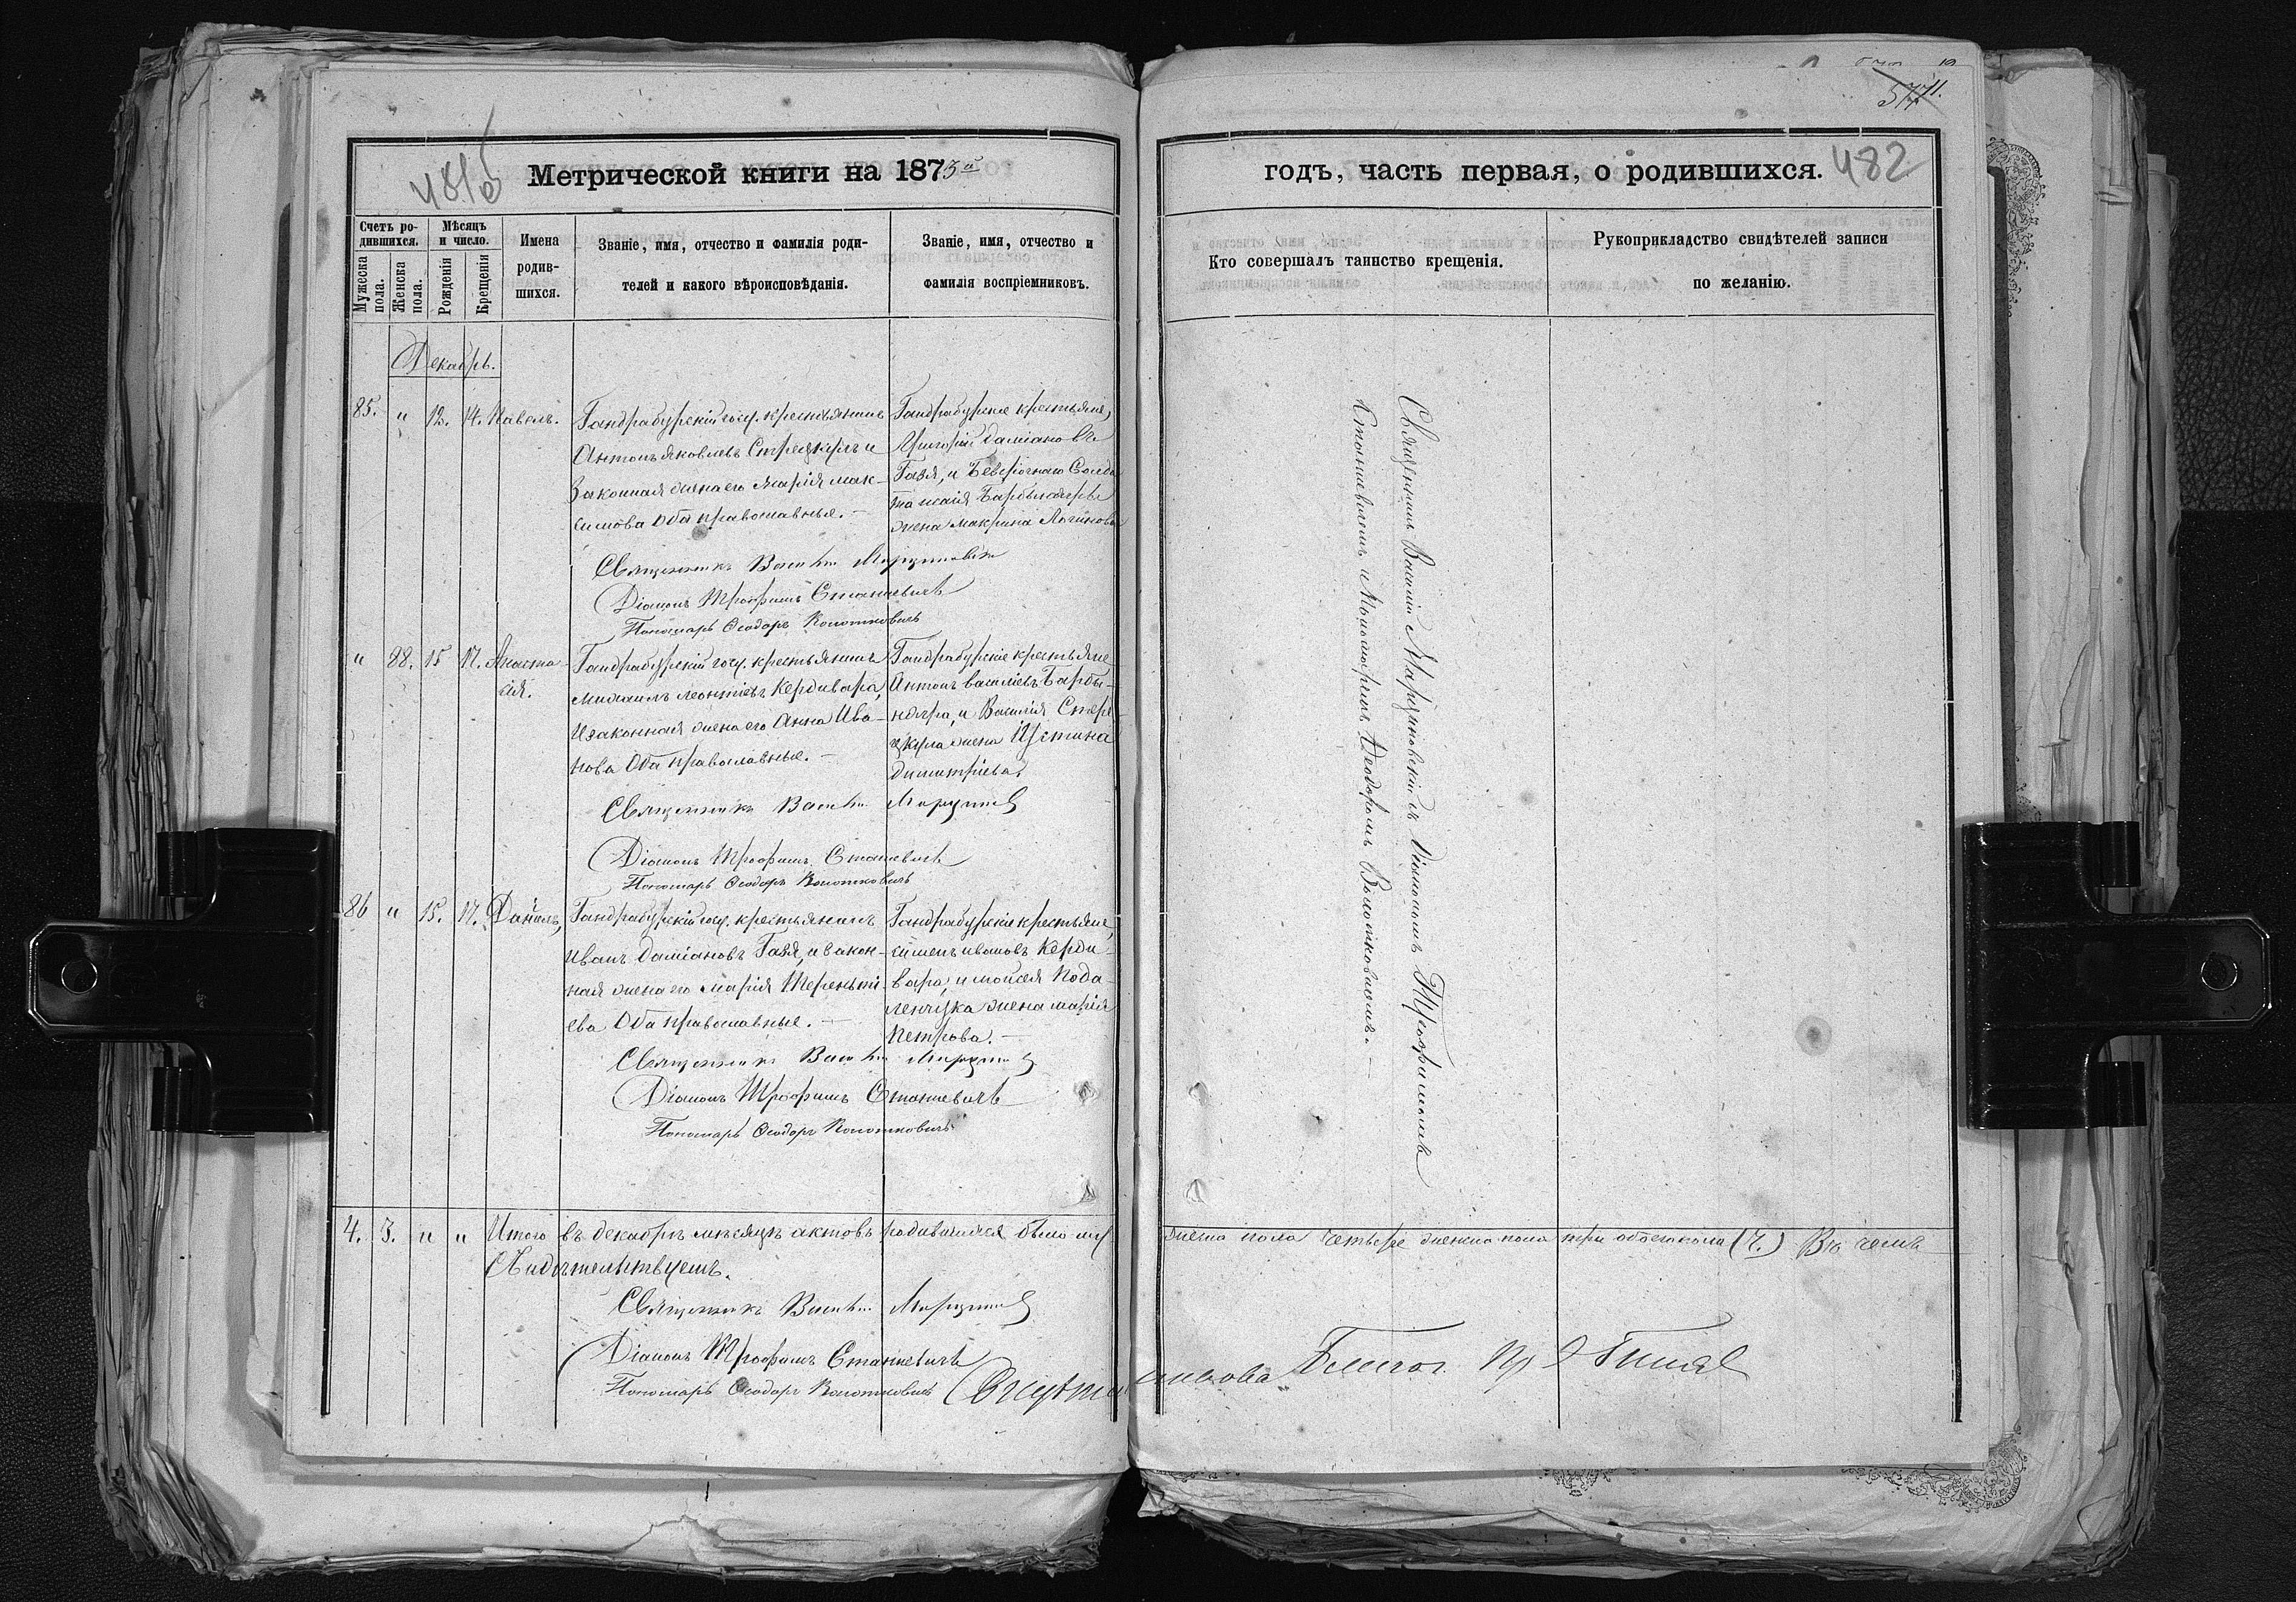 481об
Метрической книги на 1873й
Счетъ ро-
дившихся.
Мѣсяцъ
и число.
Мужеска
пола.
Женска
пола.
Рожденія
Крещенія
Имена
родив-
шихся.
Званіе, имя, отчество и фамилія роди-
телей и какого вѣроисповѣданія.
Званіе, имя, отчество и
фамилія воспріемниковъ.
Декабрь.
85. " 12. 14. Павелъ.
Гандрабурскій госу. крестьянинъ
Антонъ Яковлевъ Стрецкулъ и
Законная жена его Марія Мак-
симова Оба православные. —
Гандрабурские крестьяне,
Григорій Даміановъ
Гавя, и Безсрочнаго Солда
та
Барбынягры
жена Макрина Логинова
Священникъ Василій
Діаконъ Трофимъ Станкевичъ
Пономарь Ѳеодоръ
" 88. 15 17. Анаста-
сія.
Гандрабурскій госу. крестьянинъ
Михаилъ Леонтіевъ Кердивара,
И законная жена его Анна Ива-
нова Оба православные. —
Гандрабурскіе крестьяне
Антонъ Василіевъ Барбы-
нягра, и Василія Стре-
цкула жена Іустина
Димитріева.
Священникъ Василій
Діаконъ Трофимъ Станкевичъ
Пономарь Ѳеодоръ
86 " 15. 17. Даніилъ,
Гандрабурскій госу. крестьянинъ
Иванъ Даміановъ Гавя, и закон-
ная жена его Марія Теренті-
ева Оба православные. —
Гандрабурскіе крестьяне,
Симеонъ Ивановъ Керди-
вара, и Мойсея Пода-
ленчука жена Марія
Петрова. —
Священникъ Василій
Діаконъ Трофимъ Станкевичъ
Пономарь Ѳеодоръ
4. 3. " " Итого въ декабрѣ мѣсяцѣ актовъ родившихся было му
Свидѣтельствуемъ.
Священникъ Василій
Діаконъ Трофимъ Станкевичъ
Пономарь Ѳеодоръ
577 11.
годъ, часть первая, о родившихся. 482
Кто совершалъ таинство крещенія.
Рукоприкладство свидѣтелей записи
по желанію.
Священникъ Василій Марциновскій съ Діакономъ Трофимомъ
Станкевичемъ и Пономаремъ Ѳеодоромъ
жеска пола четыре женска пола три обоего пола (7.) Въ чемъ